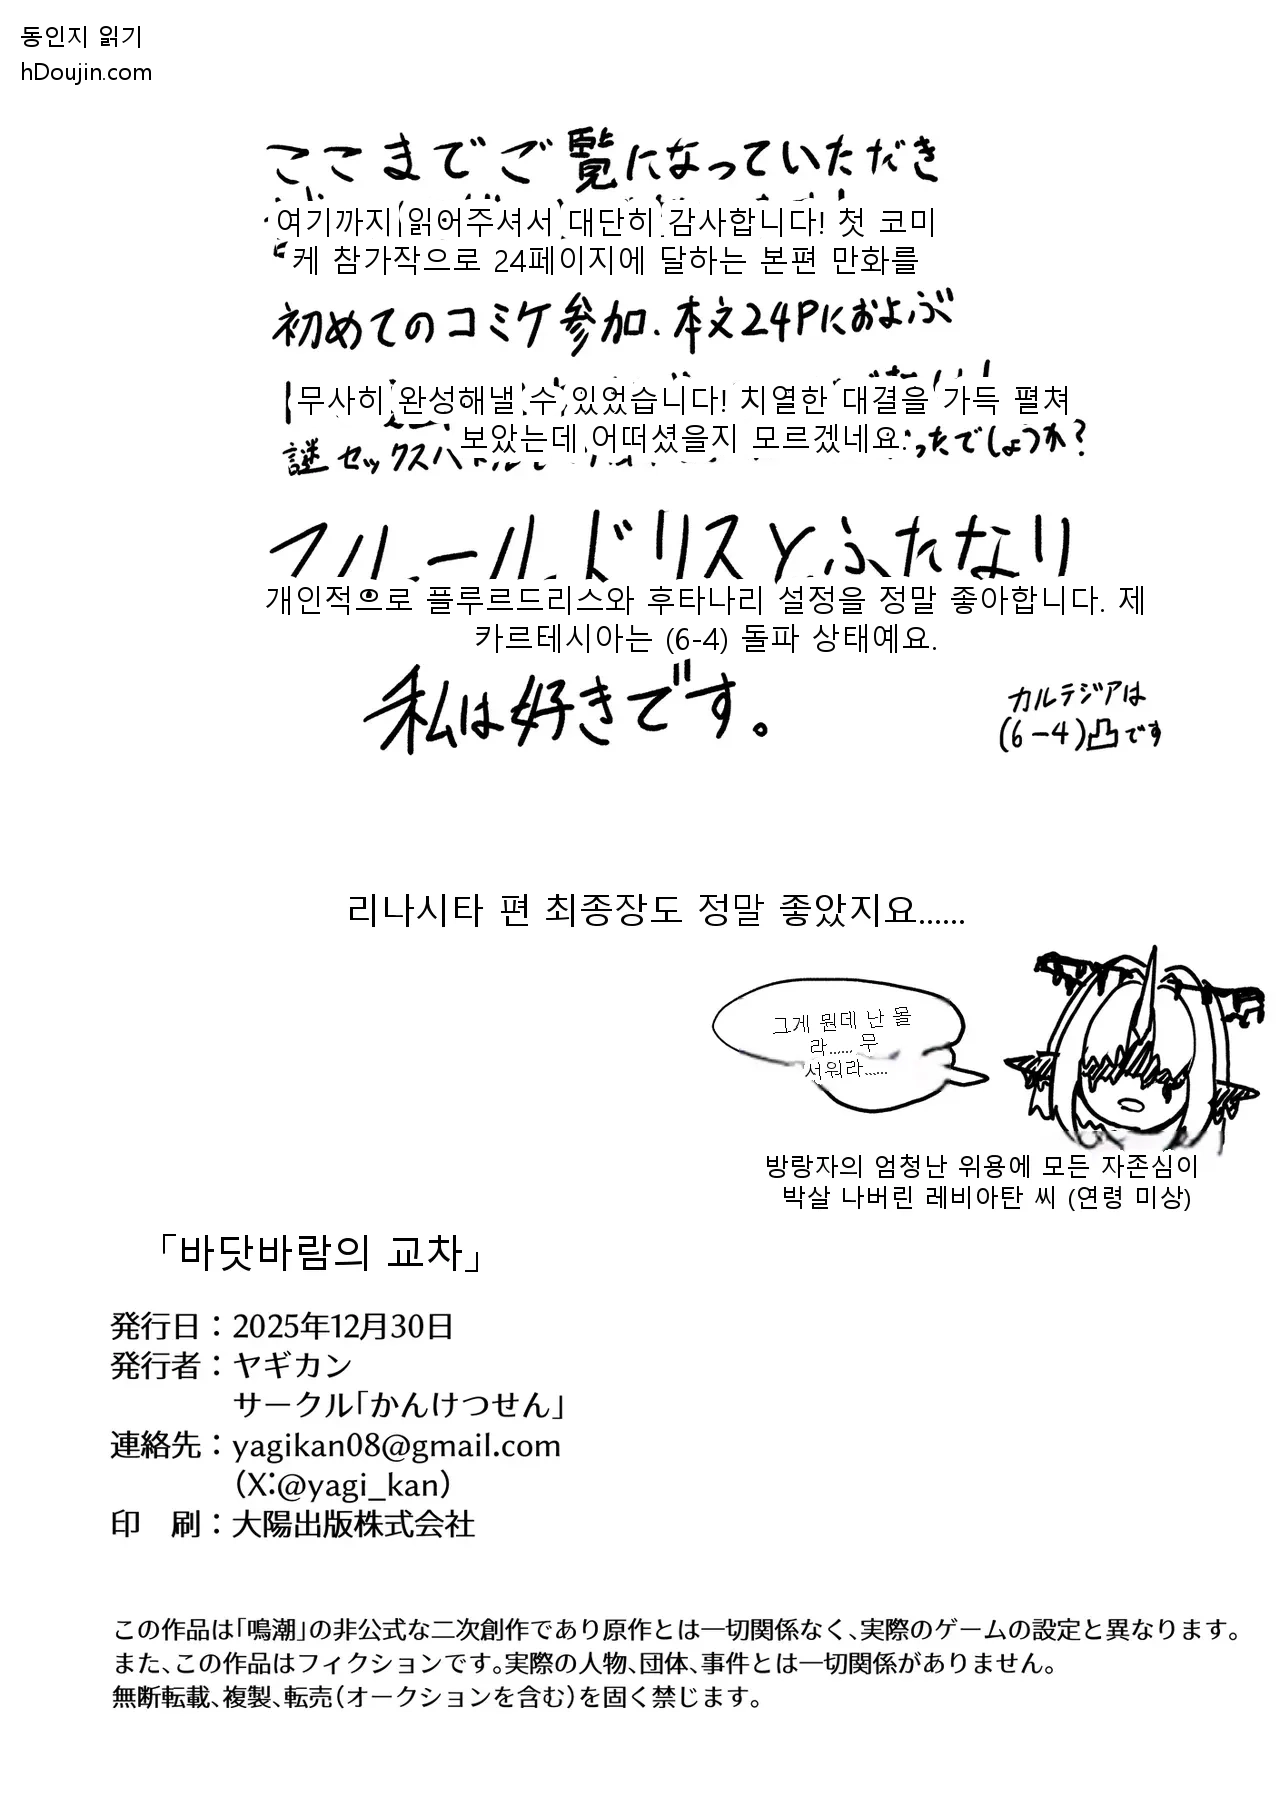 동인지 읽기
hDoujin.com
ここまでご覧になっていただき
여기까지 읽어주셔서 대단히 감사합니다! 첫 코미
케 참가작으로 24페이지에 달하는 본편 만화를
初めてのコミケ参加、本文24Pにおよぶ
무사히 완성해낼 수 있었습니다! 치열한 대결을 가득 펼쳐
보았는데 어떠셨을지 모르겠네요.
謎セックスバトル ったでしょうか?
フルールドリスとふたなり
개인적으로 플루르드리스와 후타나리 설정을 정말 좋아합니다. 제
카르테시아는 (6-4) 돌파 상태예요.
私は好きです。
カルテジアは
(6-4)凸です
리나시타 편 최종장도 정말 좋았지요......
그게 뭔데 난 몰
라...... 무
서워라......
방랑자의 엄청난 위용에 모든 자존심이
박살 나버린 레비아탄 씨 (연령 미상)
「바닷바람의 교차」
発行日：2025年12月30日
発行者：ヤギカン
サークル「かんけつせん」
連絡先：yagikan08@gmail.com
（X:@yagi_kan）
印　刷：大陽出版株式会社
この作品は「鳴潮」の非公式な二次創作であり原作とは一切関係なく、実際のゲームの設定と異なります。
また、この作品はフィクションです。実際の人物、団体、事件とは一切関係がありません。
無断転載、複製、転売（オークションを含む）を固く禁じます。